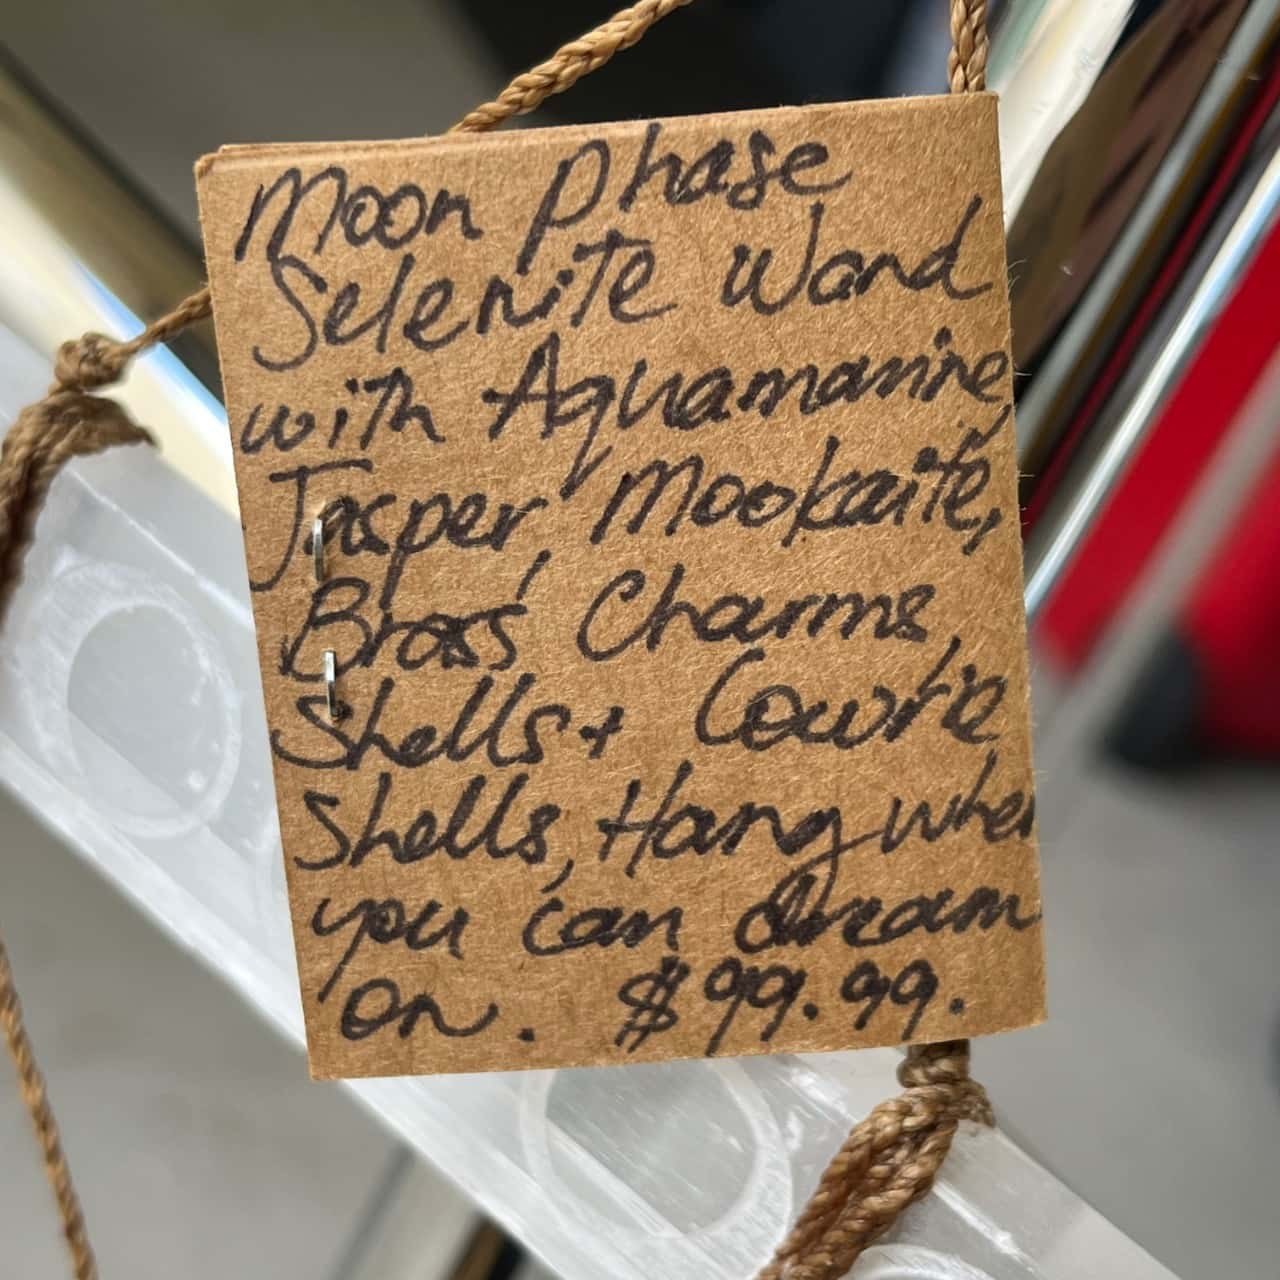 Moon Phase
Selenite Wand
with Aquamarine,
Jasper, Mookaite,
Brass Charms,
Shells + Cowrie
Shells, Hang when
you can dream
on. $99.99.